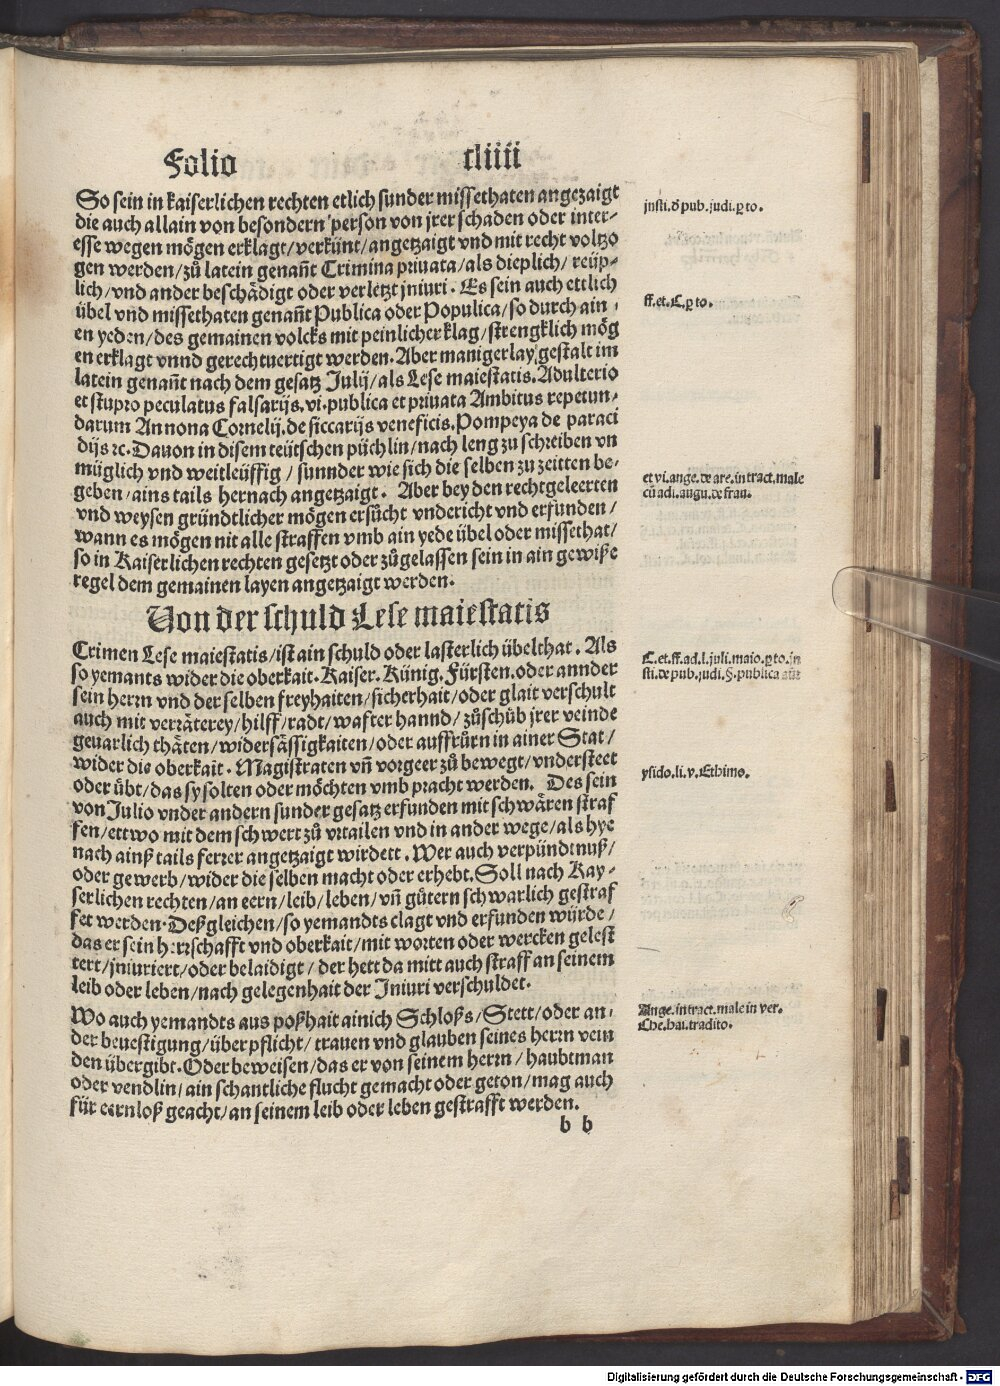 Folio cliiii
So sein in kaiserlichen rechten etlich sunder missethaten angezaigt
die auch allain von besondern person von jrer schaden oder inter-
esse wegen mögen erklagt/verkünt/angetzaigt vnd mit recht voltzo
gen werden/zů latein genan̄t Crimina priuata/als dieplich/reüp-
lich/vnd ander beschådigt oder verletzt iniuri. Es sein auch ettlich
übel vnd missethaten genan̄t Publica oder Populica/so durch ain-
en yeden/des gemainen volcks mit peinlicher klag/strengklich mög
en erklagt vnnd gerechtuertigt werden. Aber manigerlay gestalt im
latein genan̄t nach dem gesatz Julij/als Lese maiestatis. Adulterio
et stupro peculatus falsarijs. vi. publica et priuata Ambitus repetun-
darum Annona Cornelij. de siccarijs veneficis. Pompeya de paraci
dijs ⁊c. Dauon in disem teütschen püchlin/nach leng zu schreiben vn
müglich vnd weitleüffig/sunnder wie sich die selben zu zeitten be-
geben/ains tails hernach angetzaigt. Aber bey den rechtgeleerten
vnd weysen gründtlicher mögen ersůcht vndericht vnd erfunden/
wann es mögen nit alle straffen vmb ain yede übel oder missethat/
so in Kaiserlichen rechten gesetzt oder zůgelassen sein in ain gewiße
regel dem gemainen layen angetzaigt werden.
Von der schuld Lese maiestatis
Crimen Lese maiestatis/ist ain schuld oder lasterlich übelthat. Als
so yemants wider die oberkait. Kaiser. Künig. Fürsten. oder annder
sein herrn vnd der selben freyhaiten/sicherhait/oder glait verschult
auch mit verråterey/hilff/radt/wafter hannd/zůschüb jrer veinde
geuarlich thåten/widersåssigkaiten/oder auffrůrn in ainer Stat/
wider die oberkait. Magistraten vn̄ vorgeer zů bewegt/vndersteet
oder übt/das sy solten oder möchten vmb pracht werden. Des sein
von Julio vnder andern sunder gesatz erfunden mit schwåren straf
fen/ettwo mit dem schwert zů vrtailen vnd in ander wege/als hye
nach ainß tails ferrer angetzaigt wirdett. Wer auch verpündtnuß/
oder gewerb/wider die selben macht oder erhebt. Soll nach Kay-
serlichen rechten/an eern/leib/leben/vn̄ gůtern schwarlich gestraf
fet werden. Deßgleichen/so yemandts clagt vnd erfunden würde/
das er sein herrschafft vnd oberkait/mit worten oder wercken gelest
tert/iniuriert/oder belaidigt/der hett da mitt auch straff an seinem
leib oder leben/nach gelegenhait der Iniuri verschuldet.
Wo auch yemandts aus poßhait ainich Schloß/Stett/oder an-
der beuestigung/über pflicht/trauen vnd glauben seines herrn vein
den übergibt. Oder beweisen/das er von seinem herrn/haubtman
oder vendlin/ain schantliche flucht gemacht oder geton/mag auch
für eernloß geacht/an seinem leib oder leben gestrafft werden.
b b
insti. d̄ pub. judi. ꝑ to.
ff. et. C. ꝑ to.
et vi. ange. de are. in tract. male
cū adi. augu. de fran.
C. et. ff. ad. l. juli. maio. ꝑ to. in
sti. de pub. judi. §. publica aūt
ysido. li. v. Ethimo.
Ange. in tract. male in ver.
Che. hai. tradito.
Digitalisierung gefördert durch die Deutsche Forschungsgemeinschaft - DFG